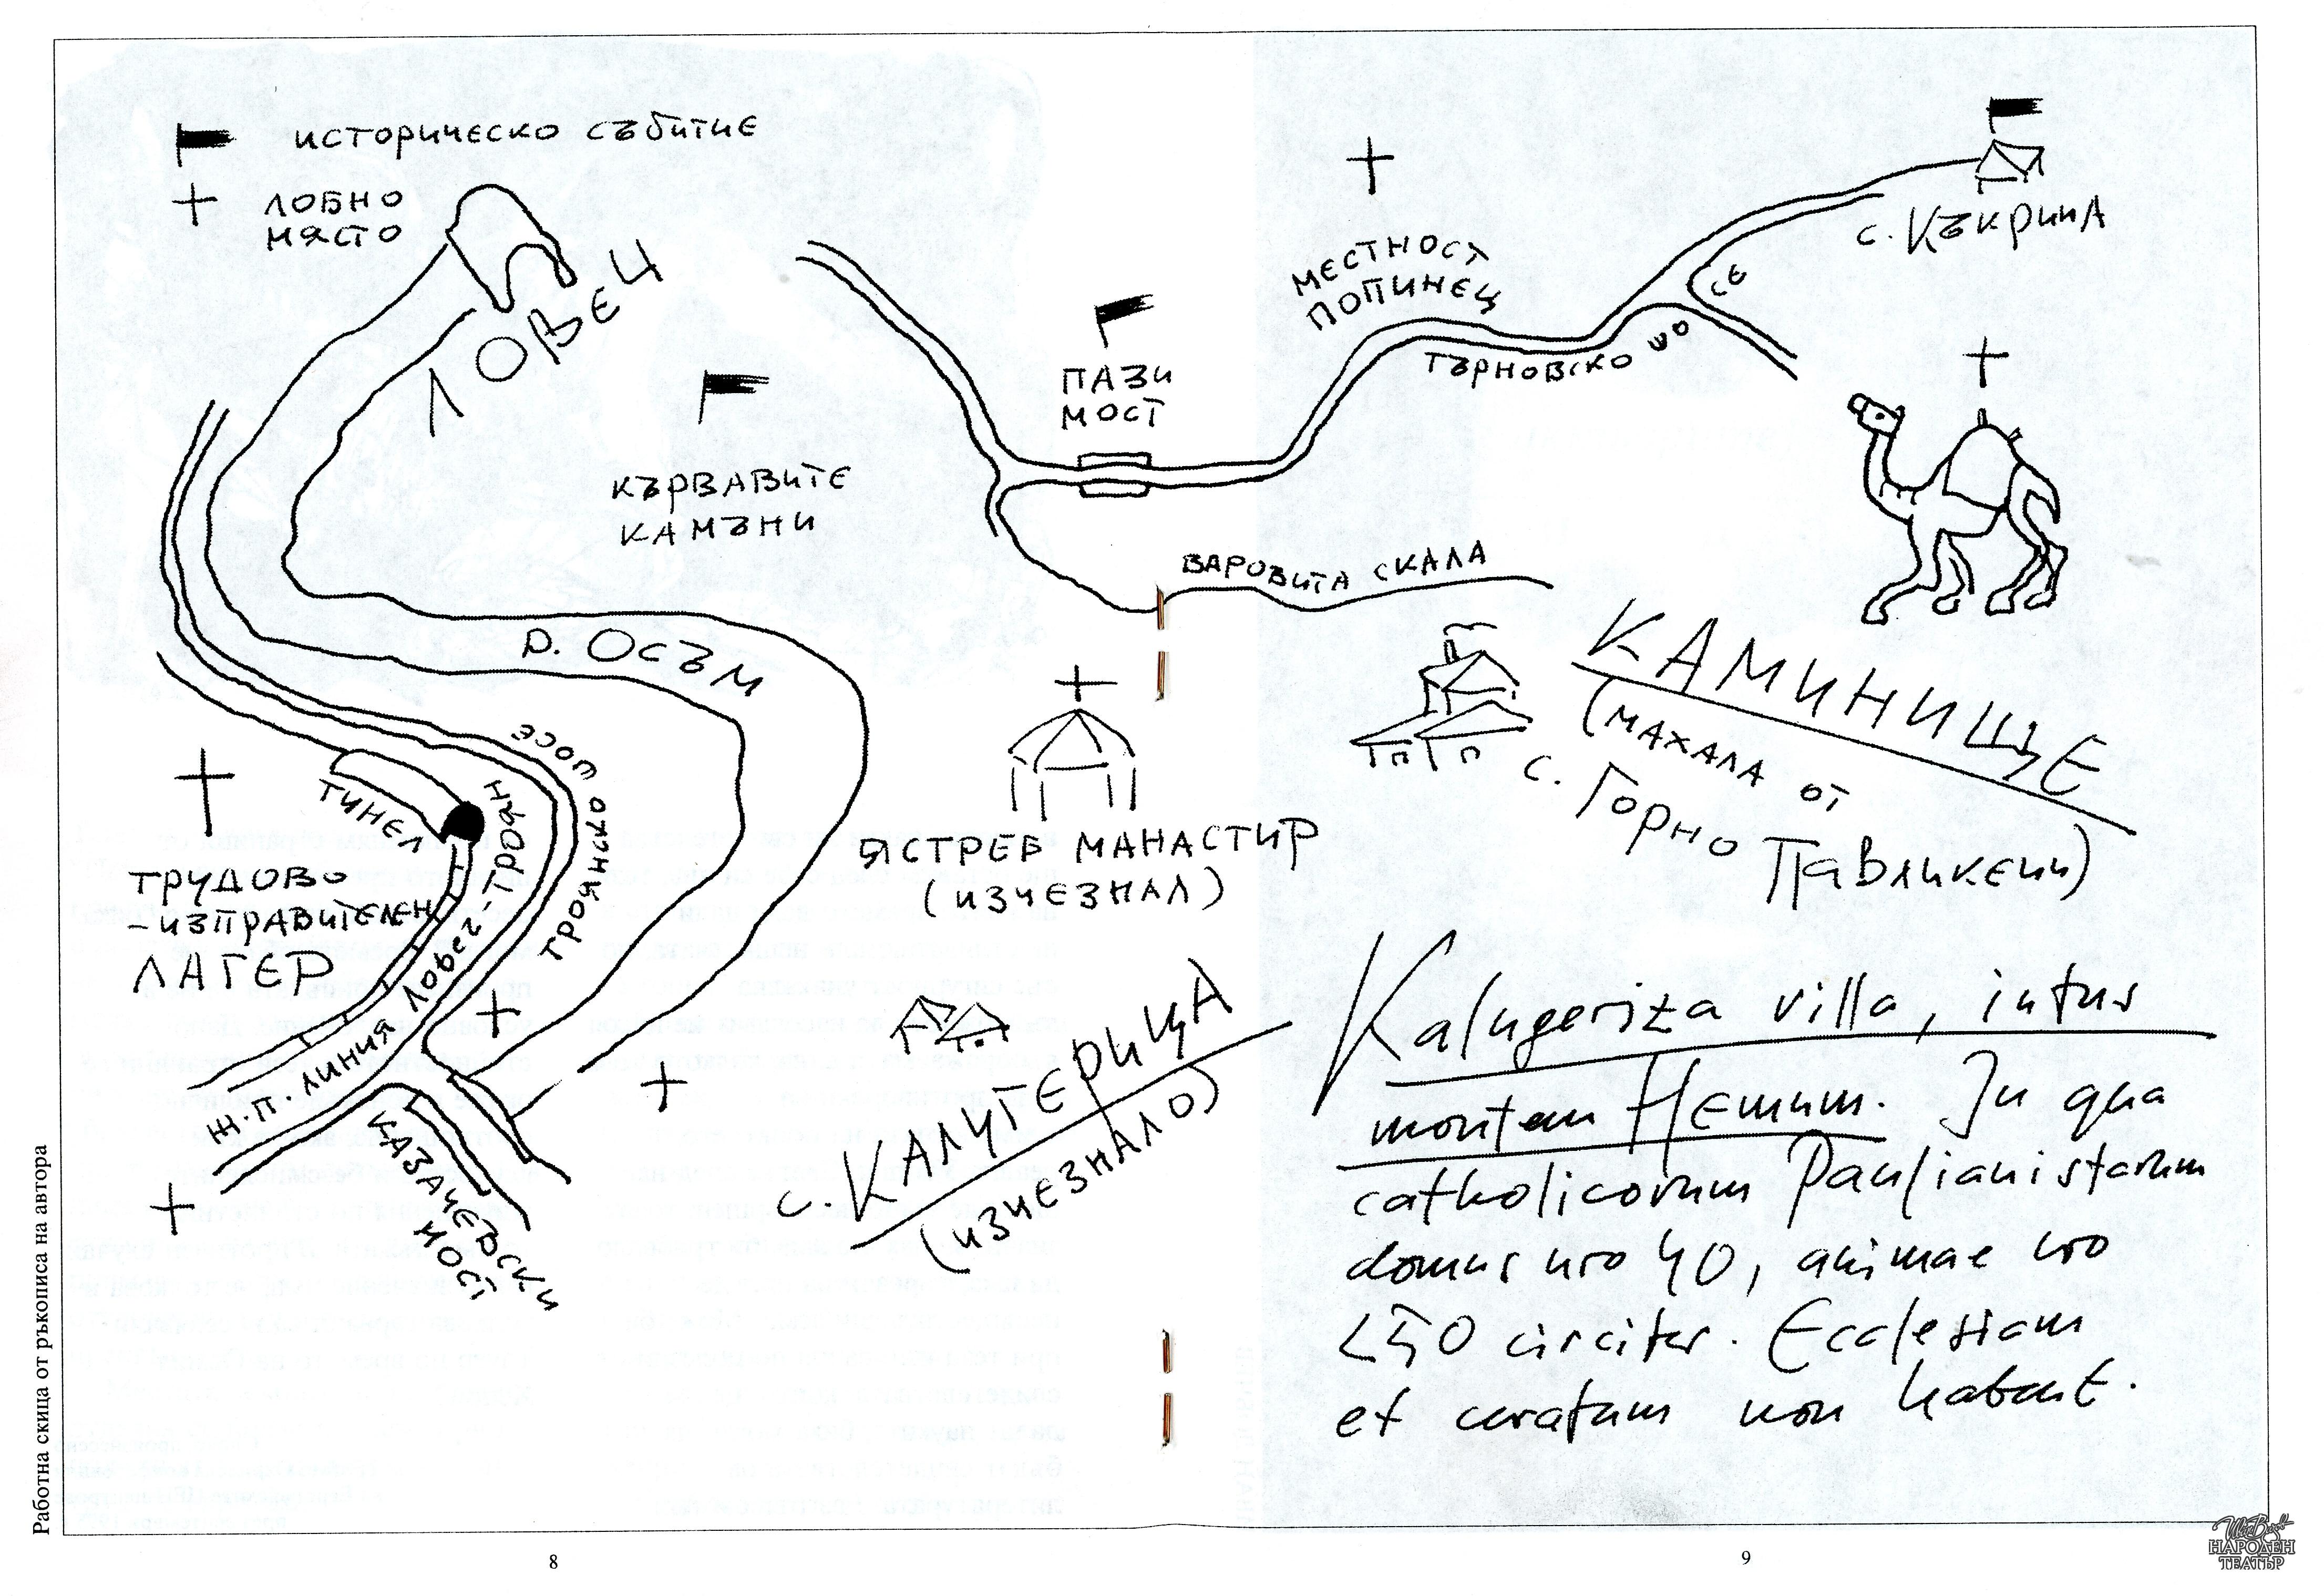 историческо събитие
лобно
място
Ловец
Кървавите
камъни
Пази
мост
местност
Попинец
с. Къкрина
Търновско шосе
варовита скала
р. Осъм
тинел
Троянско шосе
ж.п. линия Ловеч-Троян
трудово
-изправителен
лагер
Ястреб манастир
(изчезнал)
с. Калугерица
(изчезнало)
Казачерски
мост
Каминище
(махала от
с. Горно
Павликени)
Kalugeriza villa, intus
montem Hemum. In qua
catholicorum Paulianistarum
domus nro 40, animae nro
250 circiter. Ecclesiam
et curatum non habent.
Работна скица от ръкописа на автора
8
9
Иван Вазов
НАРОДЕН
ТЕАТЪР